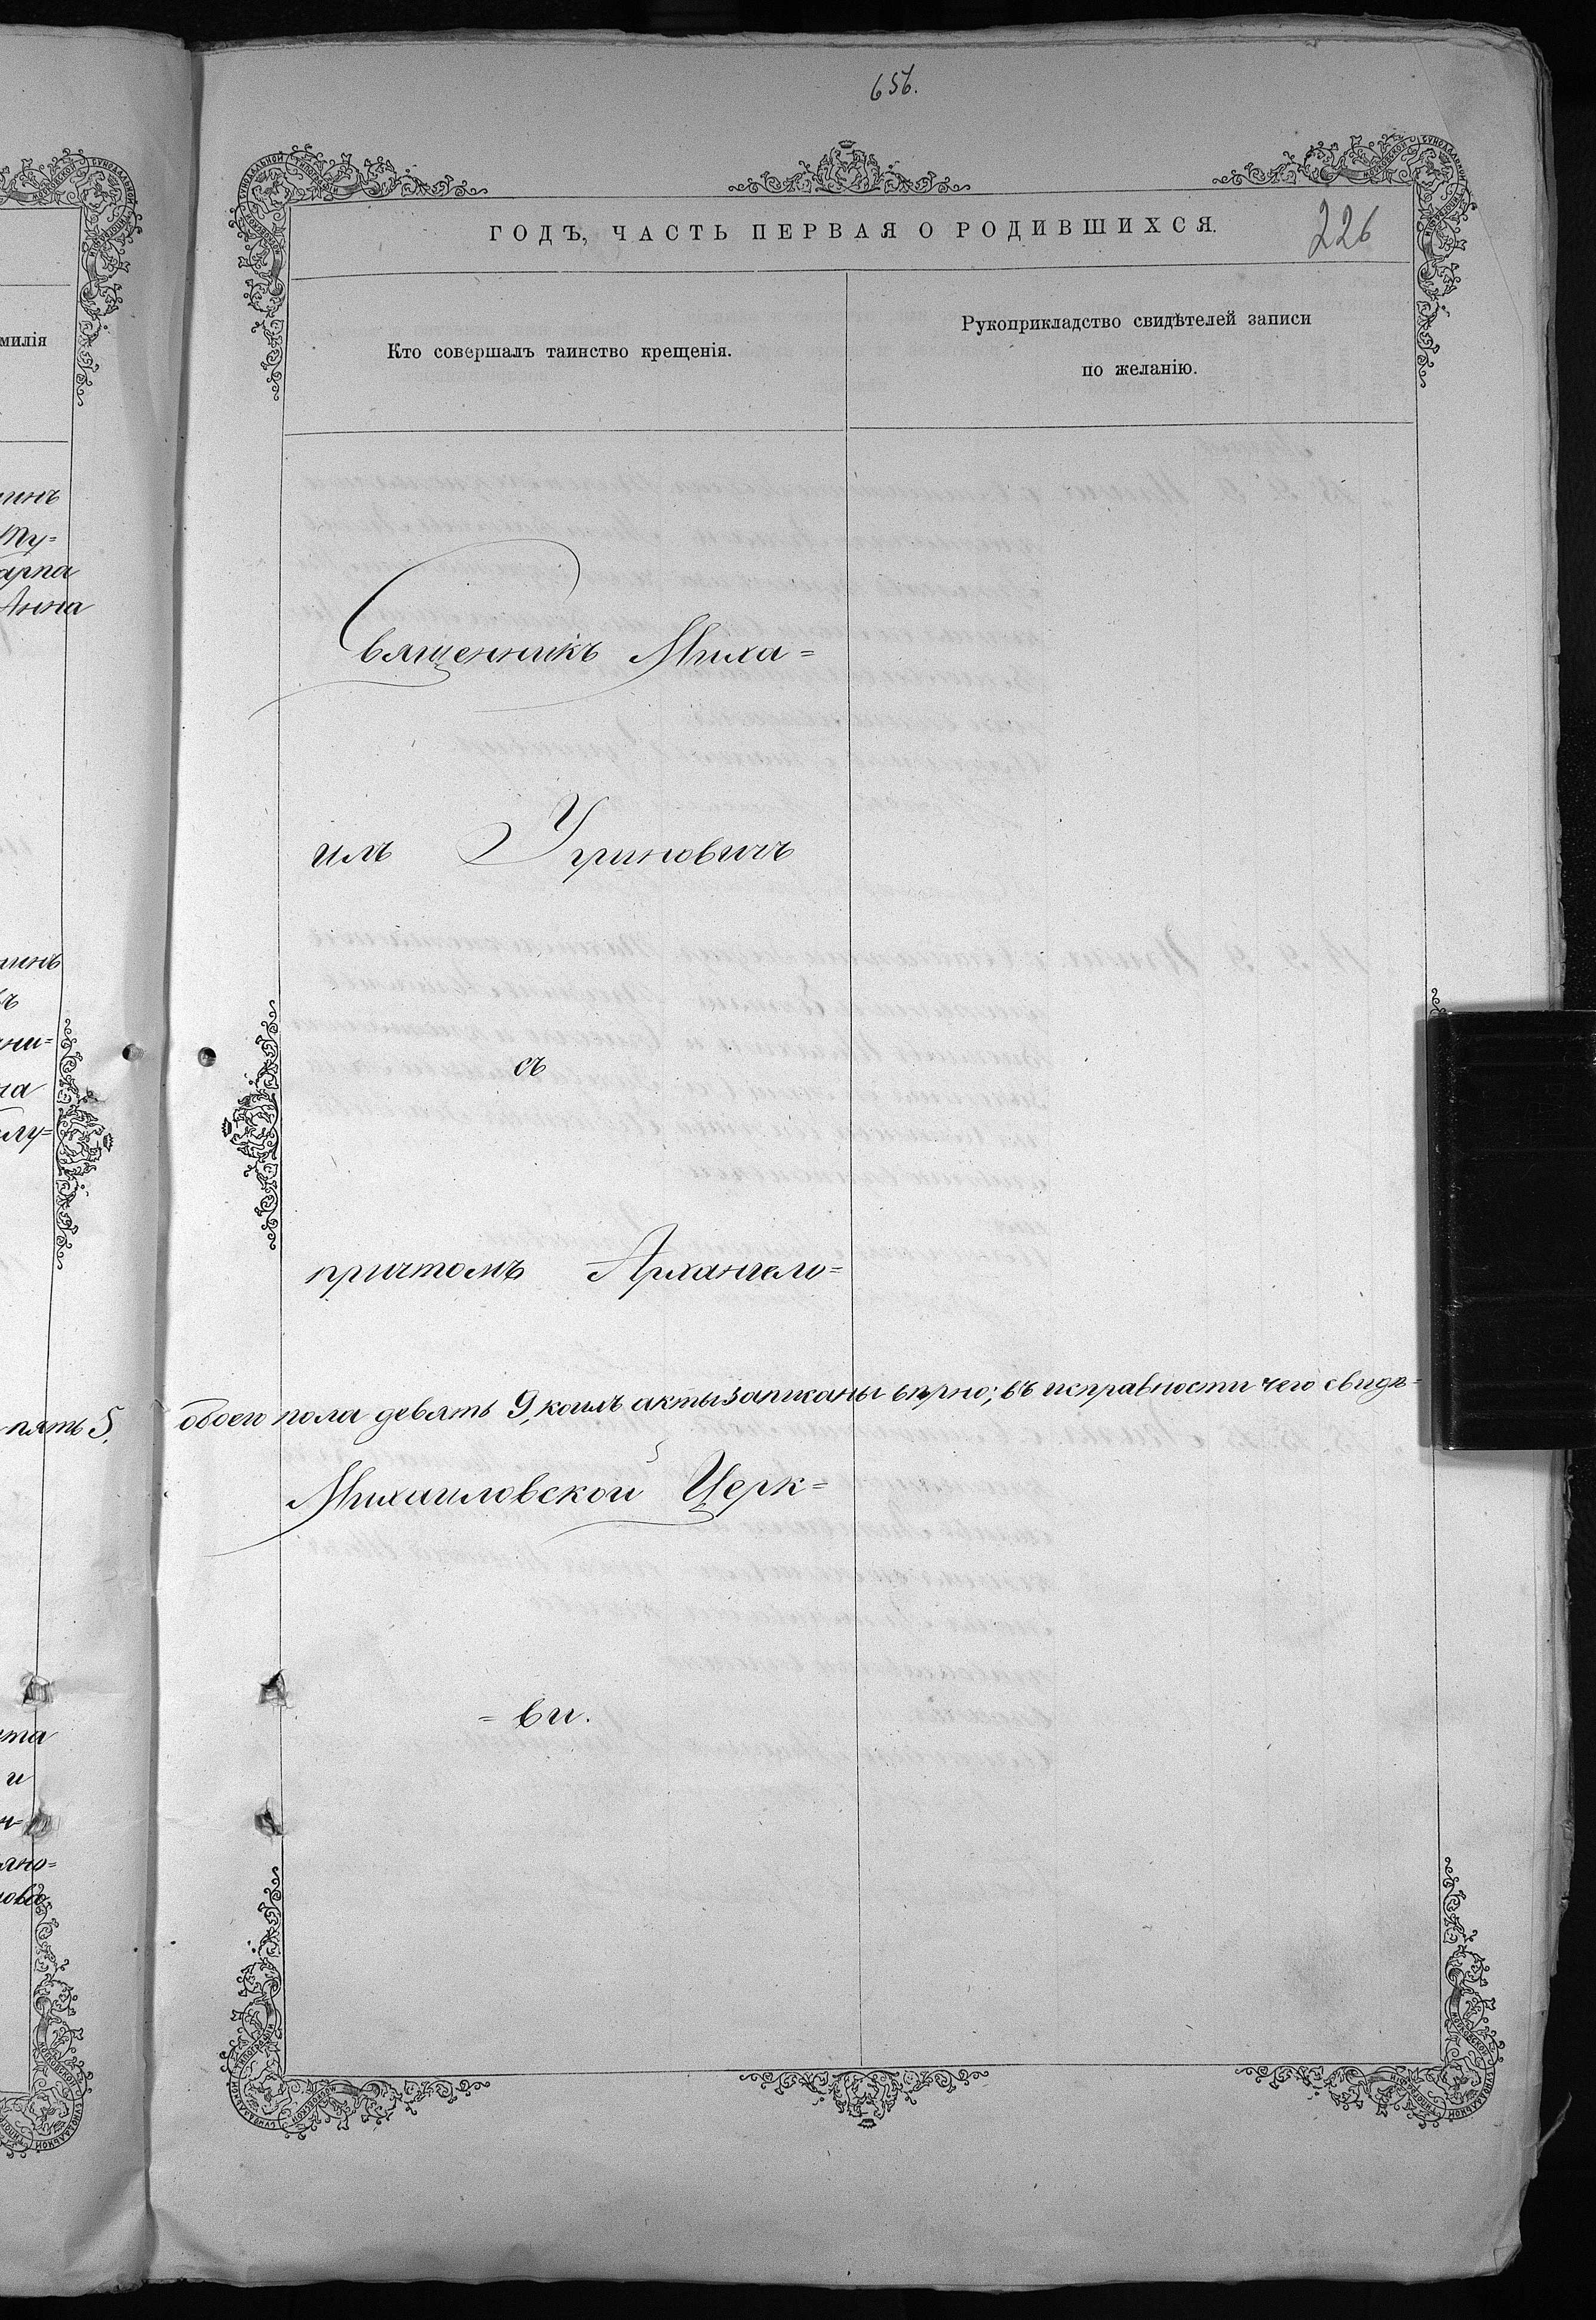 656.
ГОДЪ, ЧАСТЬ ПЕРВАЯ О РОДИВШИХСЯ.
226
милія
Кто совершалъ таинство крещенія.
Рукоприкладство свидѣтелей записи
по желанію.
Анна
Священникъ Миха=
илъ Угриновичъ
съ
причтомъ Архангело=
пять 5.
обоего пола девять 9, коихъ акты записаны вѣрно; въ исправности чего свидѣ=
Михаиловской Церк=
=ви.
и